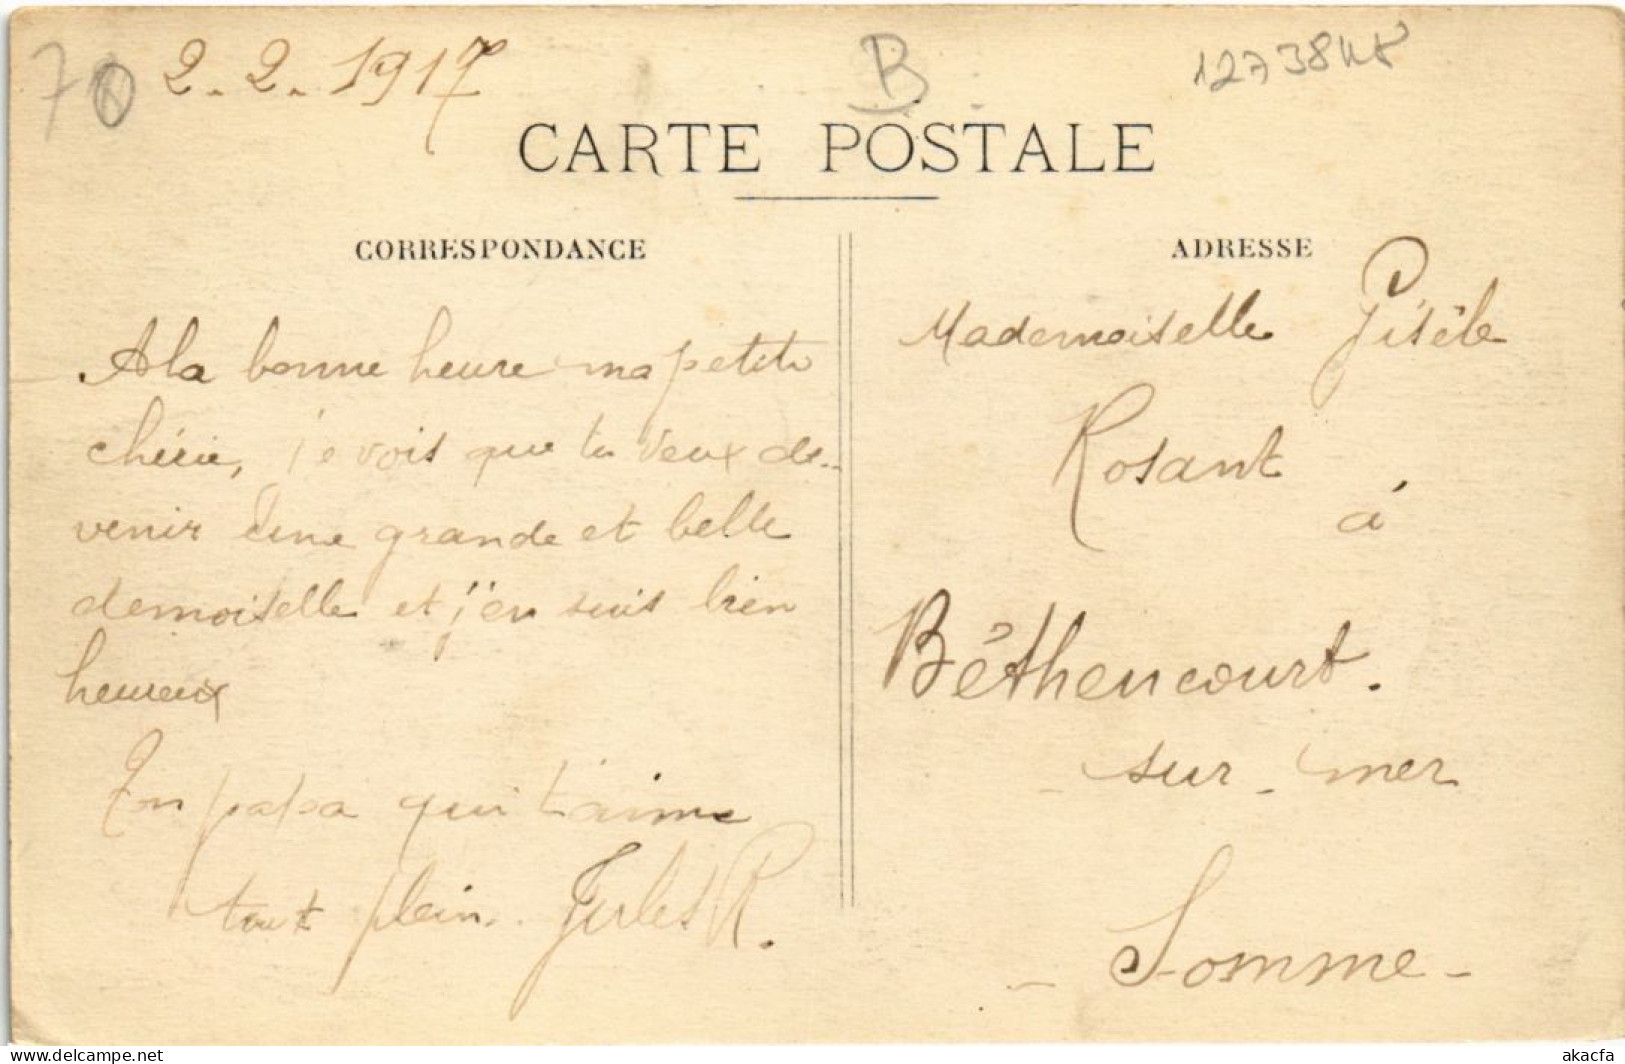 70
2.2.1917
B
CARTE POSTALE
CORRESPONDANCE
A la bonne heure ma petite
chérie, je vois que tu veux de-
venir une grande et belle
demoiselle et j'en suis bien
heureux
Ton papa qui t'aime
tout plein. Jules R.
ADRESSE
Mademoiselle Gisèle
Rosant
à
Béthencourt.
- sur - mer
- Somme -
akacfa